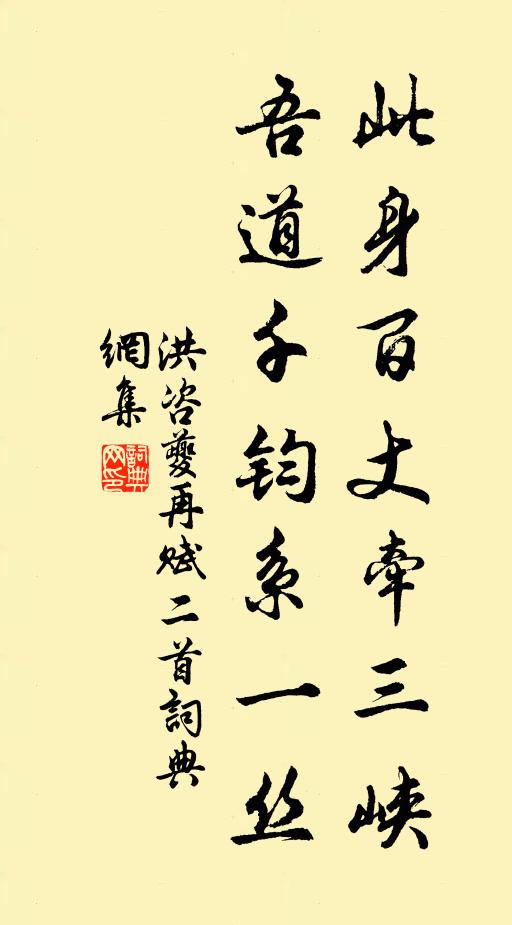 此身百丈牵三峡
吾道千钧系一丝
洪咨夔再赋二首詞典
網集
詞典
网印